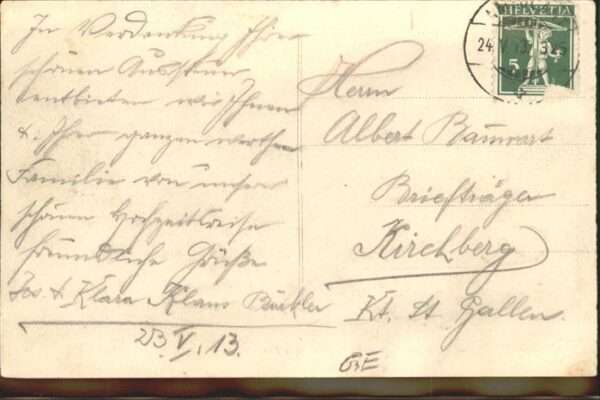 In Verdankung Ihrer
schönen Aussteuer
entbieten wir Ihnen
& Ihrer ganzen werthen
Familie von unserer
schönen Hochzeitsreise
freundliche Grüße
Jos. & Klara Klaus Bürkler
23.V.13.
HELVETIA
5
24.V.13
Herrn
Albert Baumart
Briefträger
Kirchberg
Kt. St. Gallen.